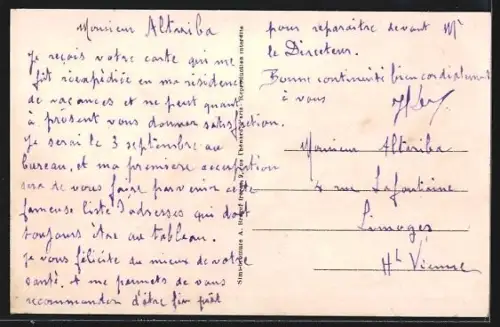 Monsieur Altariba
Je reçois votre carte qui me
fût réexpédiée en ma résidence
de vacances et ne peut quant
à présent vous donner satisfaction.
Je serai le 3 septembre au
bureau, et ma première occupation
sera de vous faire parvenir cette
fameuse liste d'adresses qui doit
toujours être au tableau.
Je vous félicite du mieux de votre
santé. et me permets de vous
recommander d'être fin prêt
pour reparaître devant Mr
le Directeur.
Bonne continuité bien cordialement
à vous
Monsieur Altariba
4 rue Lafontaine
Limoges
Hte Vienne